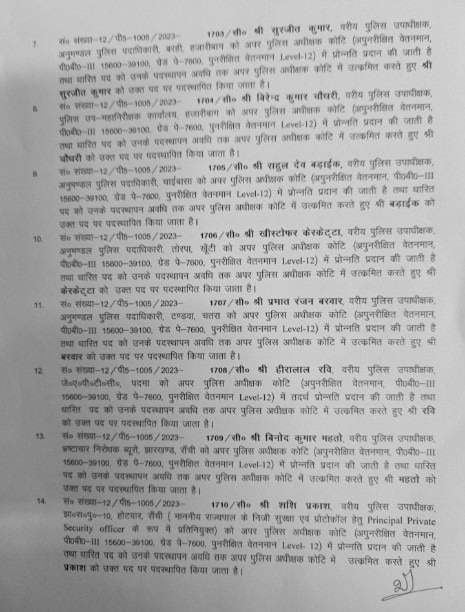 7. सं० संख्या–12/पी5–1005/2023– 1703/सी० श्री सुरजीत कुमार, वरीय पुलिस उपाधीक्षक,
अनुमण्डल पुलिस पदाधिकारी, बरही, हजारीबाग को अपर पुलिस अधीक्षक कोटि (अपुनरीक्षित वेतनमान,
पी०बी०–III 15600–39100, ग्रेड पे–7600, पुनरीक्षित वेतनमान Level-12) में प्रोन्नति प्रदान की जाती है
तथा धारित पद को उनके पदस्थापन अवधि तक अपर पुलिस अधीक्षक कोटि में उत्क्रमित करते हुए श्री
सुरजीत कुमार को उक्त पद पर पदस्थापित किया जाता है।
8. सं० संख्या–12/पी5–1005/2023– 1704/सी० श्री बिरेन्द्र कुमार चौधरी, वरीय पुलिस उपाधीक्षक,
पुलिस उप–महानिरीक्षक कार्यालय, हजारीबाग को अपर पुलिस अधीक्षक कोटि (अपुनरीक्षित वेतनमान,
पी०बी०–III 15600–39100, ग्रेड पे–7600, पुनरीक्षित वेतनमान Level-12) में प्रोन्नति प्रदान की जाती है
तथा धारित पद को उनके पदस्थापन अवधि तक अपर पुलिस अधीक्षक कोटि में उत्क्रमित करते हुए श्री
चौधरी को उक्त पद पर पदस्थापित किया जाता है।
9. सं० संख्या–12/पी5–1005/2023– 1705/सी० श्री राहुल देव बड़ाईक, वरीय पुलिस उपाधीक्षक,
अनुमण्डल पुलिस पदाधिकारी, चाईबासा को अपर पुलिस अधीक्षक कोटि (अपुनरीक्षित वेतनमान, पी०बी०–III
15600–39100, ग्रेड पे–7600, पुनरीक्षित वेतनमान Level-12) में प्रोन्नति प्रदान की जाती है तथा धारित
पद को उनके पदस्थापन अवधि तक अपर पुलिस अधीक्षक कोटि में उत्क्रमित करते हुए श्री बड़ाईक को
उक्त पद पर पदस्थापित किया जाता है।
10. सं० संख्या–12/पी5–1005/2023– 1706/सी० श्री ख्रीस्टोफर केरकेट्टा, वरीय पुलिस उपाधीक्षक,
अनुमण्डल पुलिस पदाधिकारी, तोरपा, खूँटी को अपर पुलिस अधीक्षक कोटि (अपुनरीक्षित वेतनमान,
पी०बी०–III 15600–39100, ग्रेड पे–7600, पुनरीक्षित वेतनमान Level-12) में प्रोन्नति प्रदान की जाती है
तथा धारित पद को उनके पदस्थापन अवधि तक अपर पुलिस अधीक्षक कोटि में उत्क्रमित करते हुए श्री
केरकेट्टा को उक्त पद पर पदस्थापित किया जाता है।
11. सं० संख्या–12/पी5–1005/2023– 1707/सी० श्री प्रभात रंजन बरवार, वरीय पुलिस उपाधीक्षक,
अनुमण्डल पुलिस पदाधिकारी, टण्डवा, चतरा को अपर पुलिस अधीक्षक कोटि (अपुनरीक्षित वेतनमान,
पी०बी०–III 15600–39100, ग्रेड पे–7600, पुनरीक्षित वेतनमान Level-12) में प्रोन्नति प्रदान की जाती है
तथा धारित पद को उनके पदस्थापन अवधि तक अपर पुलिस अधीक्षक कोटि में उत्क्रमित करते हुए श्री
बरवार को उक्त पद पर पदस्थापित किया जाता है।
12. सं० संख्या–12/पी5–1005/2023– 1708/सी० श्री हीरालाल रवि, वरीय पुलिस उपाधीक्षक,
जे०ए०पी०टी०सी०, पदमा को अपर पुलिस अधीक्षक कोटि (अपुनरीक्षित वेतनमान, पी०बी०–III
15600–39100, ग्रेड पे–7600, पुनरीक्षित वेतनमान Level-12) में तदर्थ प्रोन्नति प्रदान की जाती है तथा
धारित पद को उनके पदस्थापन अवधि तक अपर पुलिस अधीक्षक कोटि में उत्क्रमित करते हुए श्री रवि
को उक्त पद पर पदस्थापित किया जाता है।
13. सं० संख्या–12/पी5–1005/2023– 1709/सी० श्री बिनोद कुमार महतो, वरीय पुलिस उपाधीक्षक,
भ्रष्टाचार निरोधक ब्यूरो, झारखण्ड, राँची को अपर पुलिस अधीक्षक कोटि (अपुनरीक्षित वेतनमान, पी०बी०–III
15600–39100, ग्रेड पे–7600, पुनरीक्षित वेतनमान Level-12) में प्रोन्नति प्रदान की जाती है तथा धारित
पद को उनके पदस्थापन अवधि तक अपर पुलिस अधीक्षक कोटि में उत्क्रमित करते हुए श्री महतो को
उक्त पद पर पदस्थापित किया जाता है।
14. सं० संख्या–12/पी5–1005/2023– 1710/सी० श्री शशि प्रकाश, वरीय पुलिस उपाधीक्षक,
झा०स०पु०–10, होटवार, राँची ( माननीय राज्यपाल के निजी सुरक्षा एवं प्रोटोकॉल हेतु Principal Private
Security officer के रूप में प्रतिनियुक्त) को अपर पुलिस अधीक्षक कोटि (अपुनरीक्षित वेतनमान,
पी०बी०–III 15600–39100, ग्रेड पे–7600, पुनरीक्षित वेतनमान Level- 12) में प्रोन्नति प्रदान की जाती है
तथा धारित पद को उनके पदस्थापन अवधि तक अपर पुलिस अधीक्षक कोटि में उत्क्रमित करते हुए श्री
प्रकाश को उक्त पद पर पदस्थापित किया जाता है।